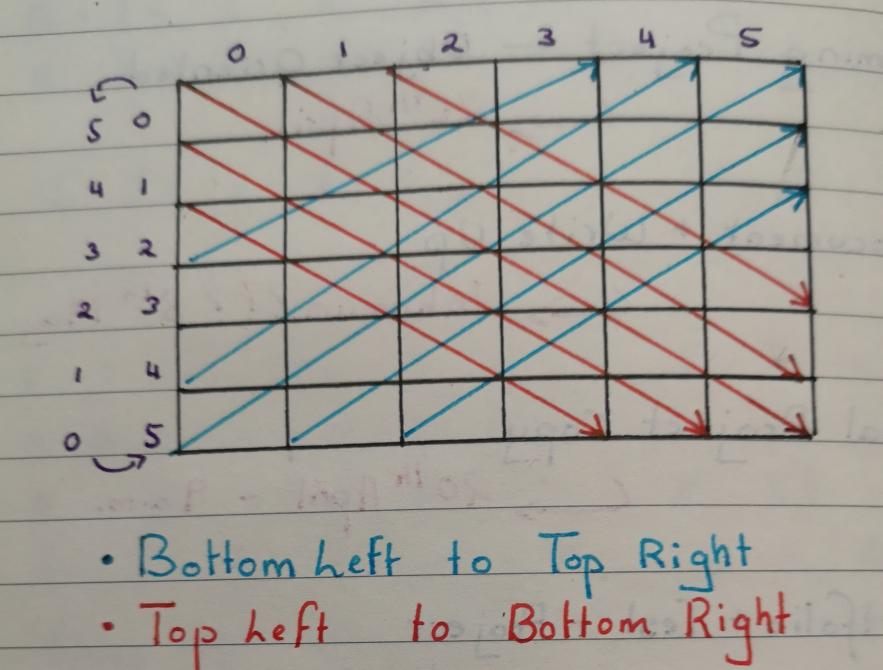 0 1 2 3 4 5
5 0
4 1
3 2
2 3
1 4
0 5
• Bottom Left to Top Right
• Top Left to Bottom Right